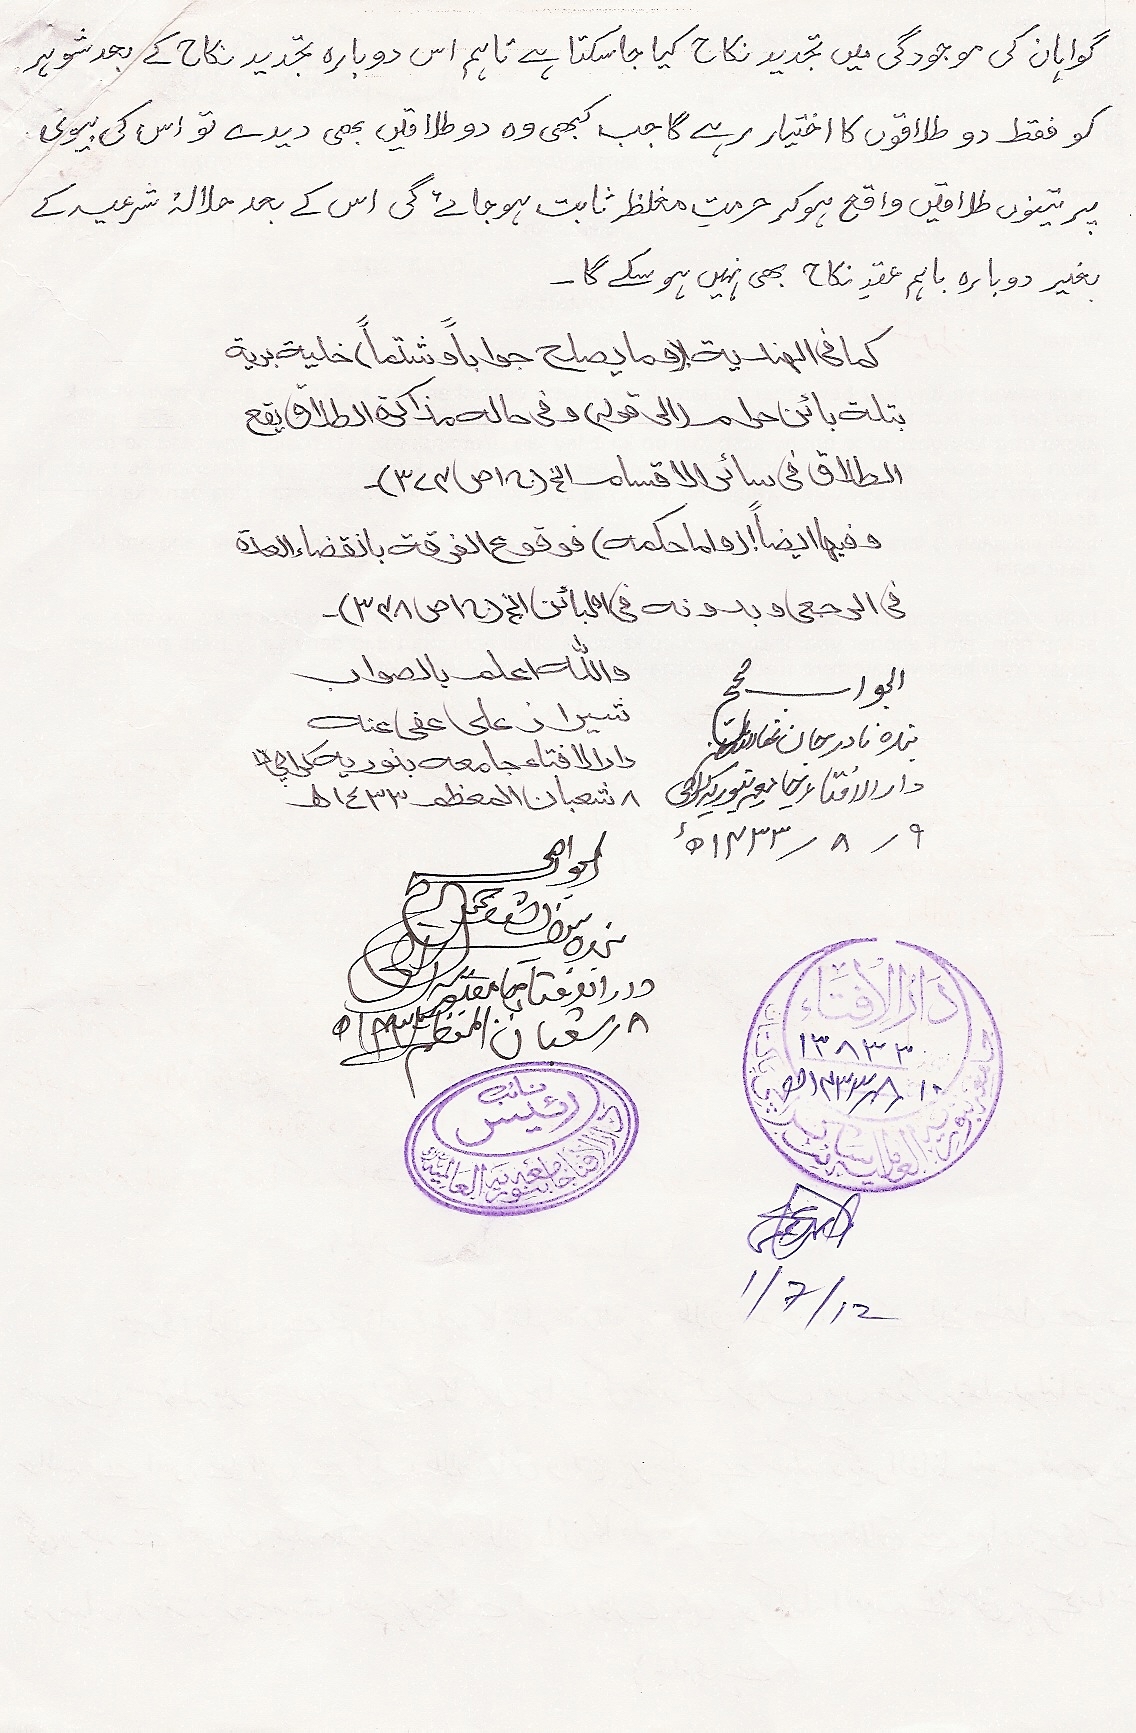 گواہان کی موجودگی میں تجدید نکاح کیا جاسکتا ہے تاہم اس دوبارہ تجدید نکاح کے بعد شوہر
کو فقط دو طلاقوں کا اختیار رہے گا جب کبھی وہ دو طلاقیں بھی دیدے تو اس کی بیوی
پر تینوں طلاقیں واقع ہوکر حرمتِ مغلظہ ثابت ہوجائے گی اس کے بعد حلالۂ شرعیہ کے
بغیر دوبارہ باہم عقدِ نکاح بھی نہیں ہوسکے گا۔
کما فی الهندية (وما يصلح جواباً وشتماً) خلية برية
بتلة بائن حرام (الی قوله) وفی حالة مذاكرة الطلاق يقع
الطلاق فی سائر الاقسام الخ (ج۱ ص۳۷۴)۔
وفيها ايضاً: (واما حكمه) فوقوع الفرقة بانقضاء العدة
فی الرجعی وبدونه فی البائن الخ (ج۱ ص۳۴۸)۔
واللّٰه اعلم بالصواب
شیراز علی عفی عنه
دارالافتاء جامعه بنوریه کراچی
۸ شعبان المعظم ۱٤۳۳ھ
الجواب صحیح
بندہ نادر جان
دار الافتاء جامعہ بنوریہ کراچی
۹ / ۸ / ۱۴۳۳ھ
الجواب صحیح
بندہ
دار الافتاء جامعہ بنوریہ
۸ شعبان المعظم ۱۴۳۳ھ
دار الافتاء
۱۳۸۳۳
۱۰ / ۸ / ۱۴۳۳ھ
جامعہ بنوریہ العالمیہ
نائب
رئیس
دار الافتاء جامعہ بنوریہ العالمیہ
1/7/12